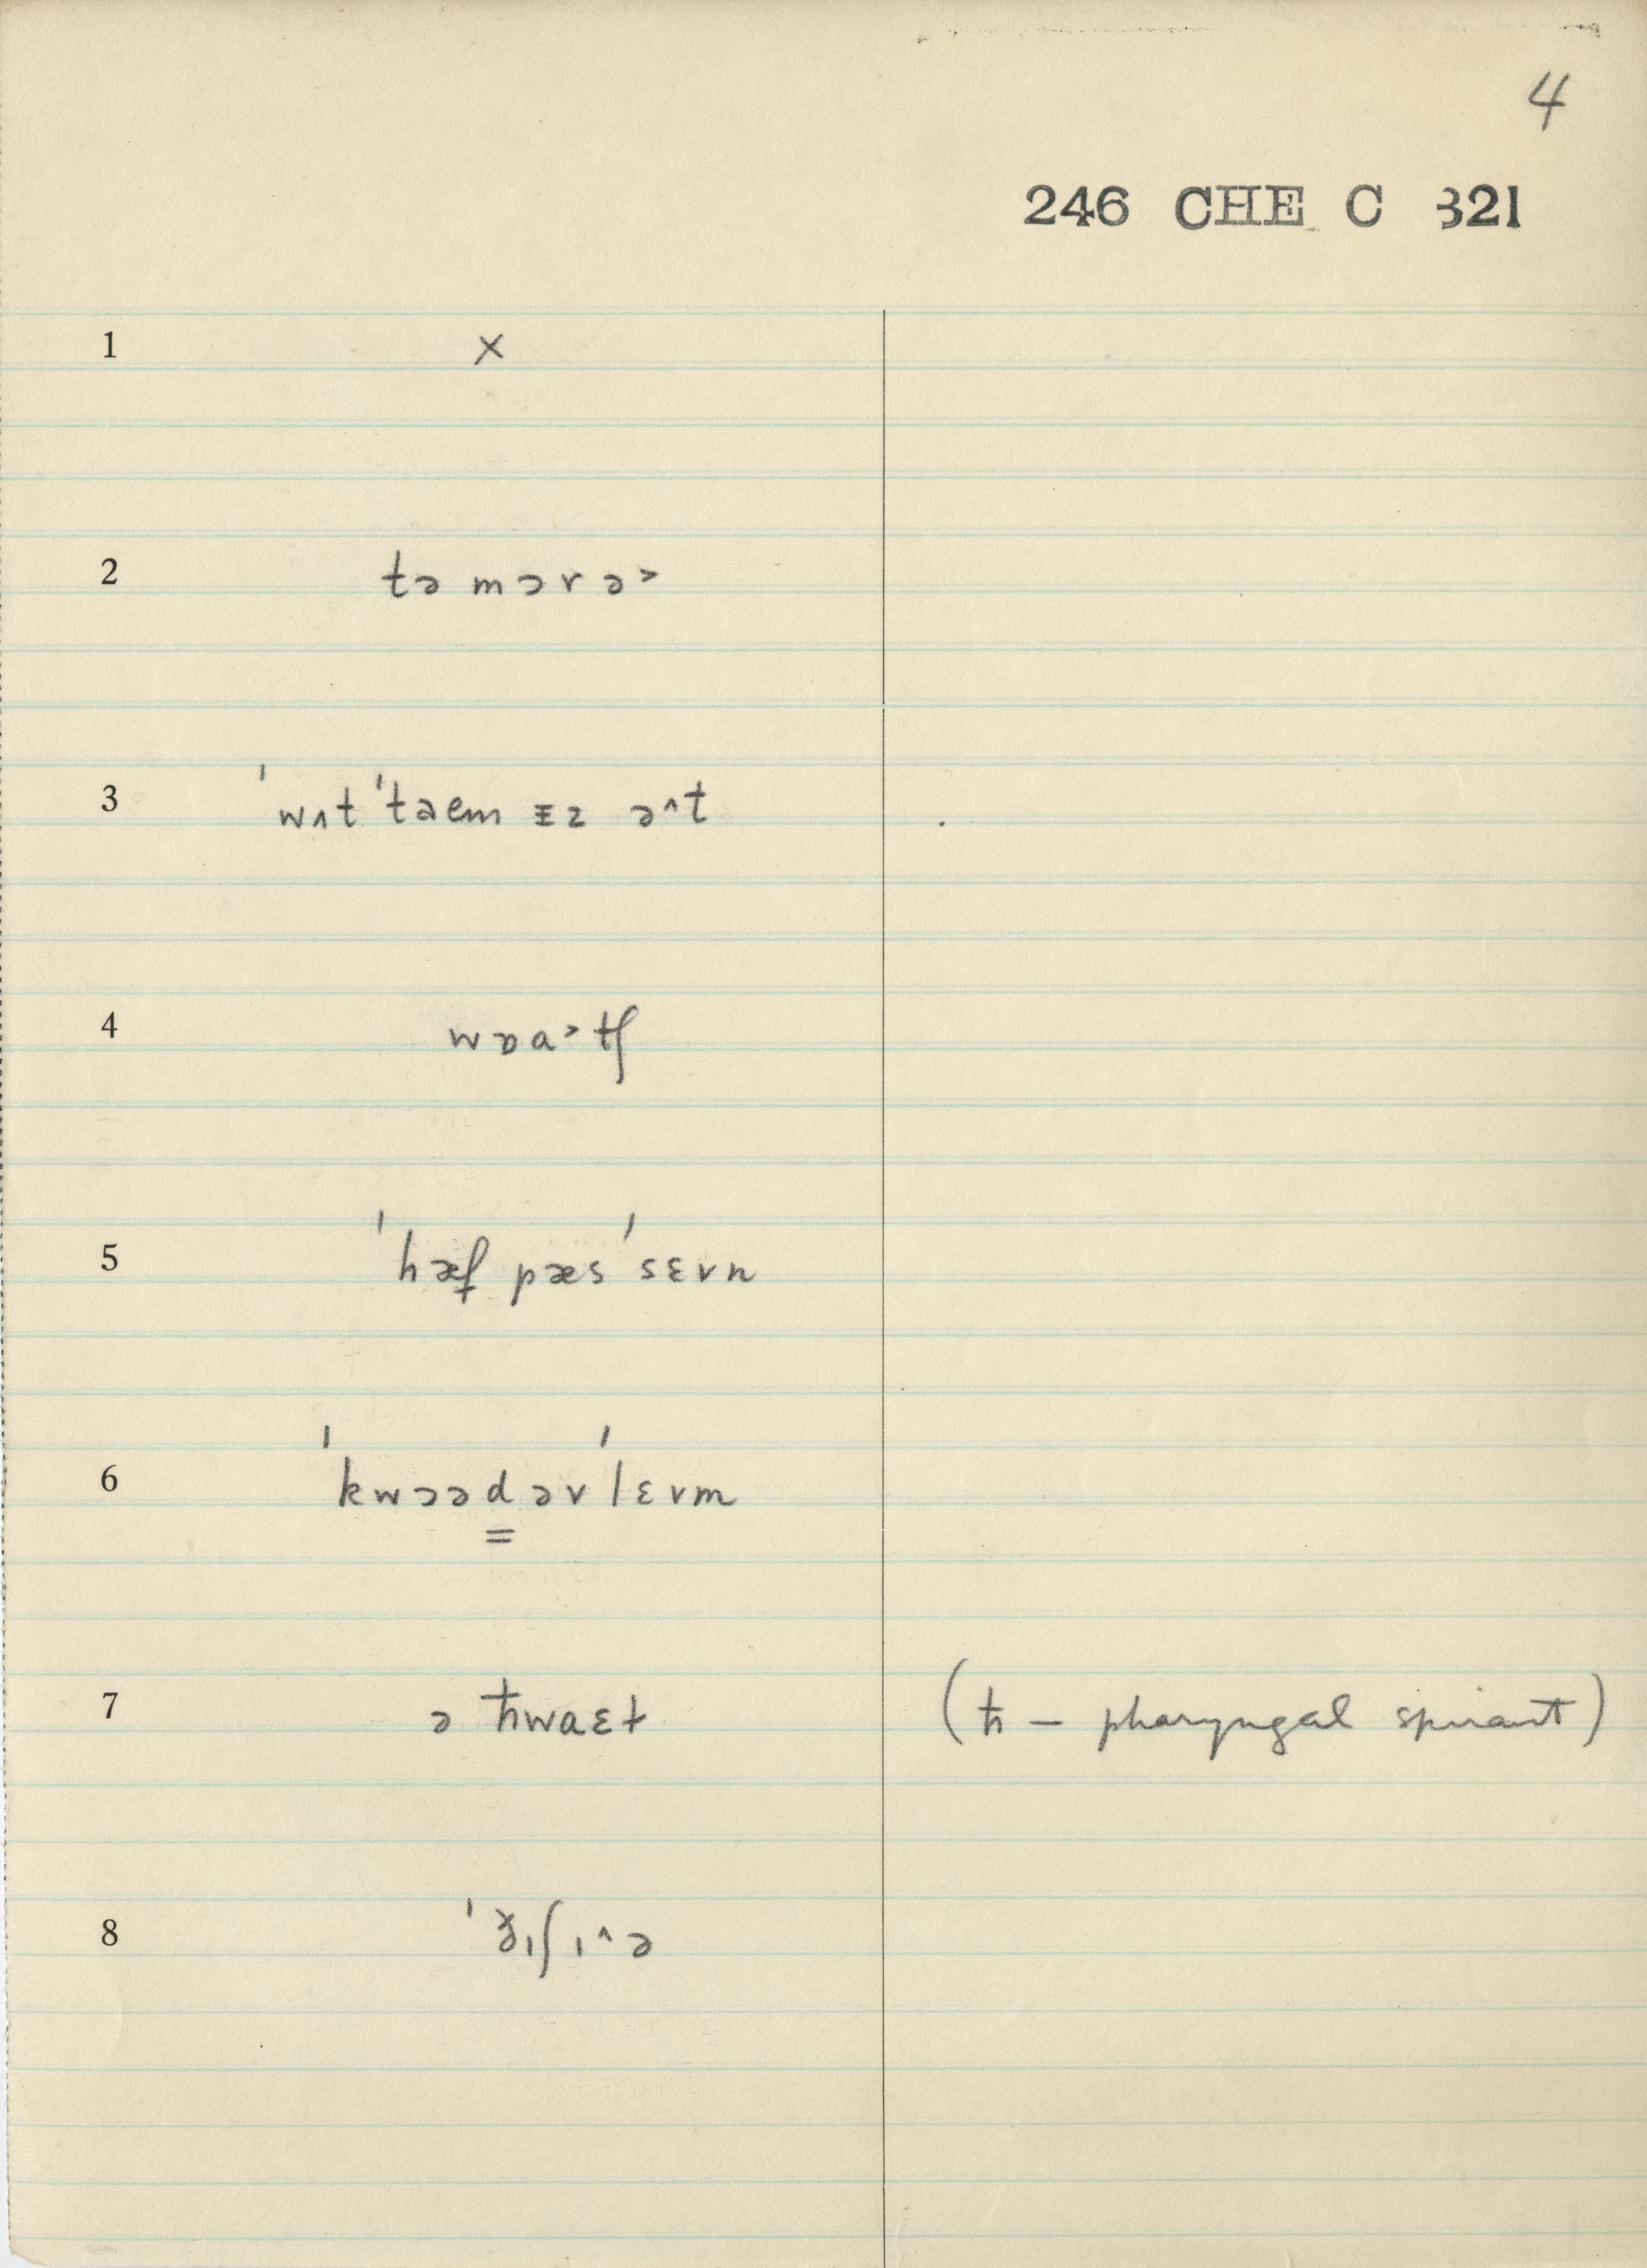 4
246 CHE C 321
1 ×
2 tə mɔrə˃
3 ˈwʌt ˈtaem ɪz ə^t
4 wɒa˃tʃ
5 ˈhæf pæs ˈsɛvn
6 ˈkwɔəd əv ˈlɛvm
7 ə ħwaɛt (ħ — pharyngal spirant)
8